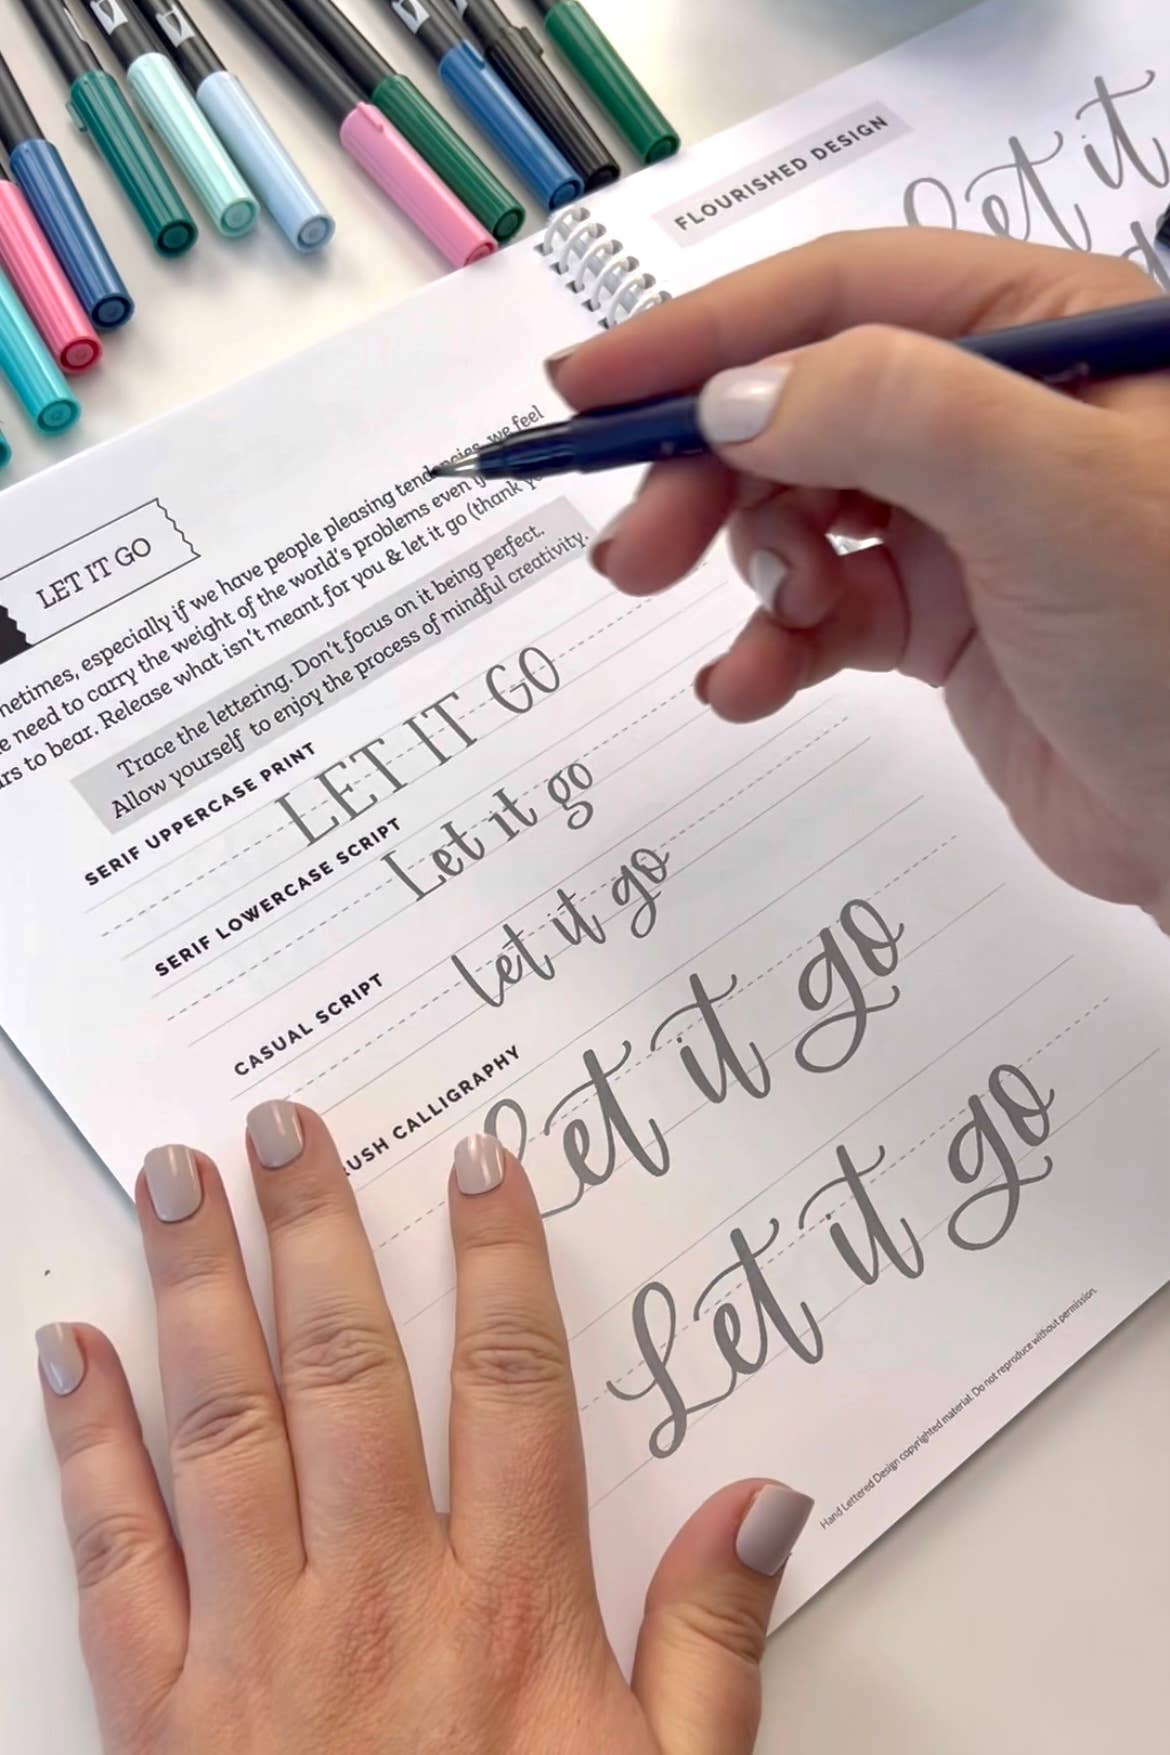 FLOURISHED DESIGN
Let it
LET IT GO
netimes, especially if we have people pleasing tendencies, we feel
e need to carry the weight of the world's problems even
rs to bear. Release what isn't meant for you & let it go (thank
Trace the lettering. Don't focus on it being perfect.
Allow yourself to enjoy the process of mindful creativity.
SERIF UPPERCASE PRINT
LET IT GO
SERIF LOWERCASE SCRIPT
Let it go
CASUAL SCRIPT
let it go
RUSH CALLIGRAPHY
Let it go
Let it go
Hand Lettered Design copyrighted material. Do not reproduce without permission.